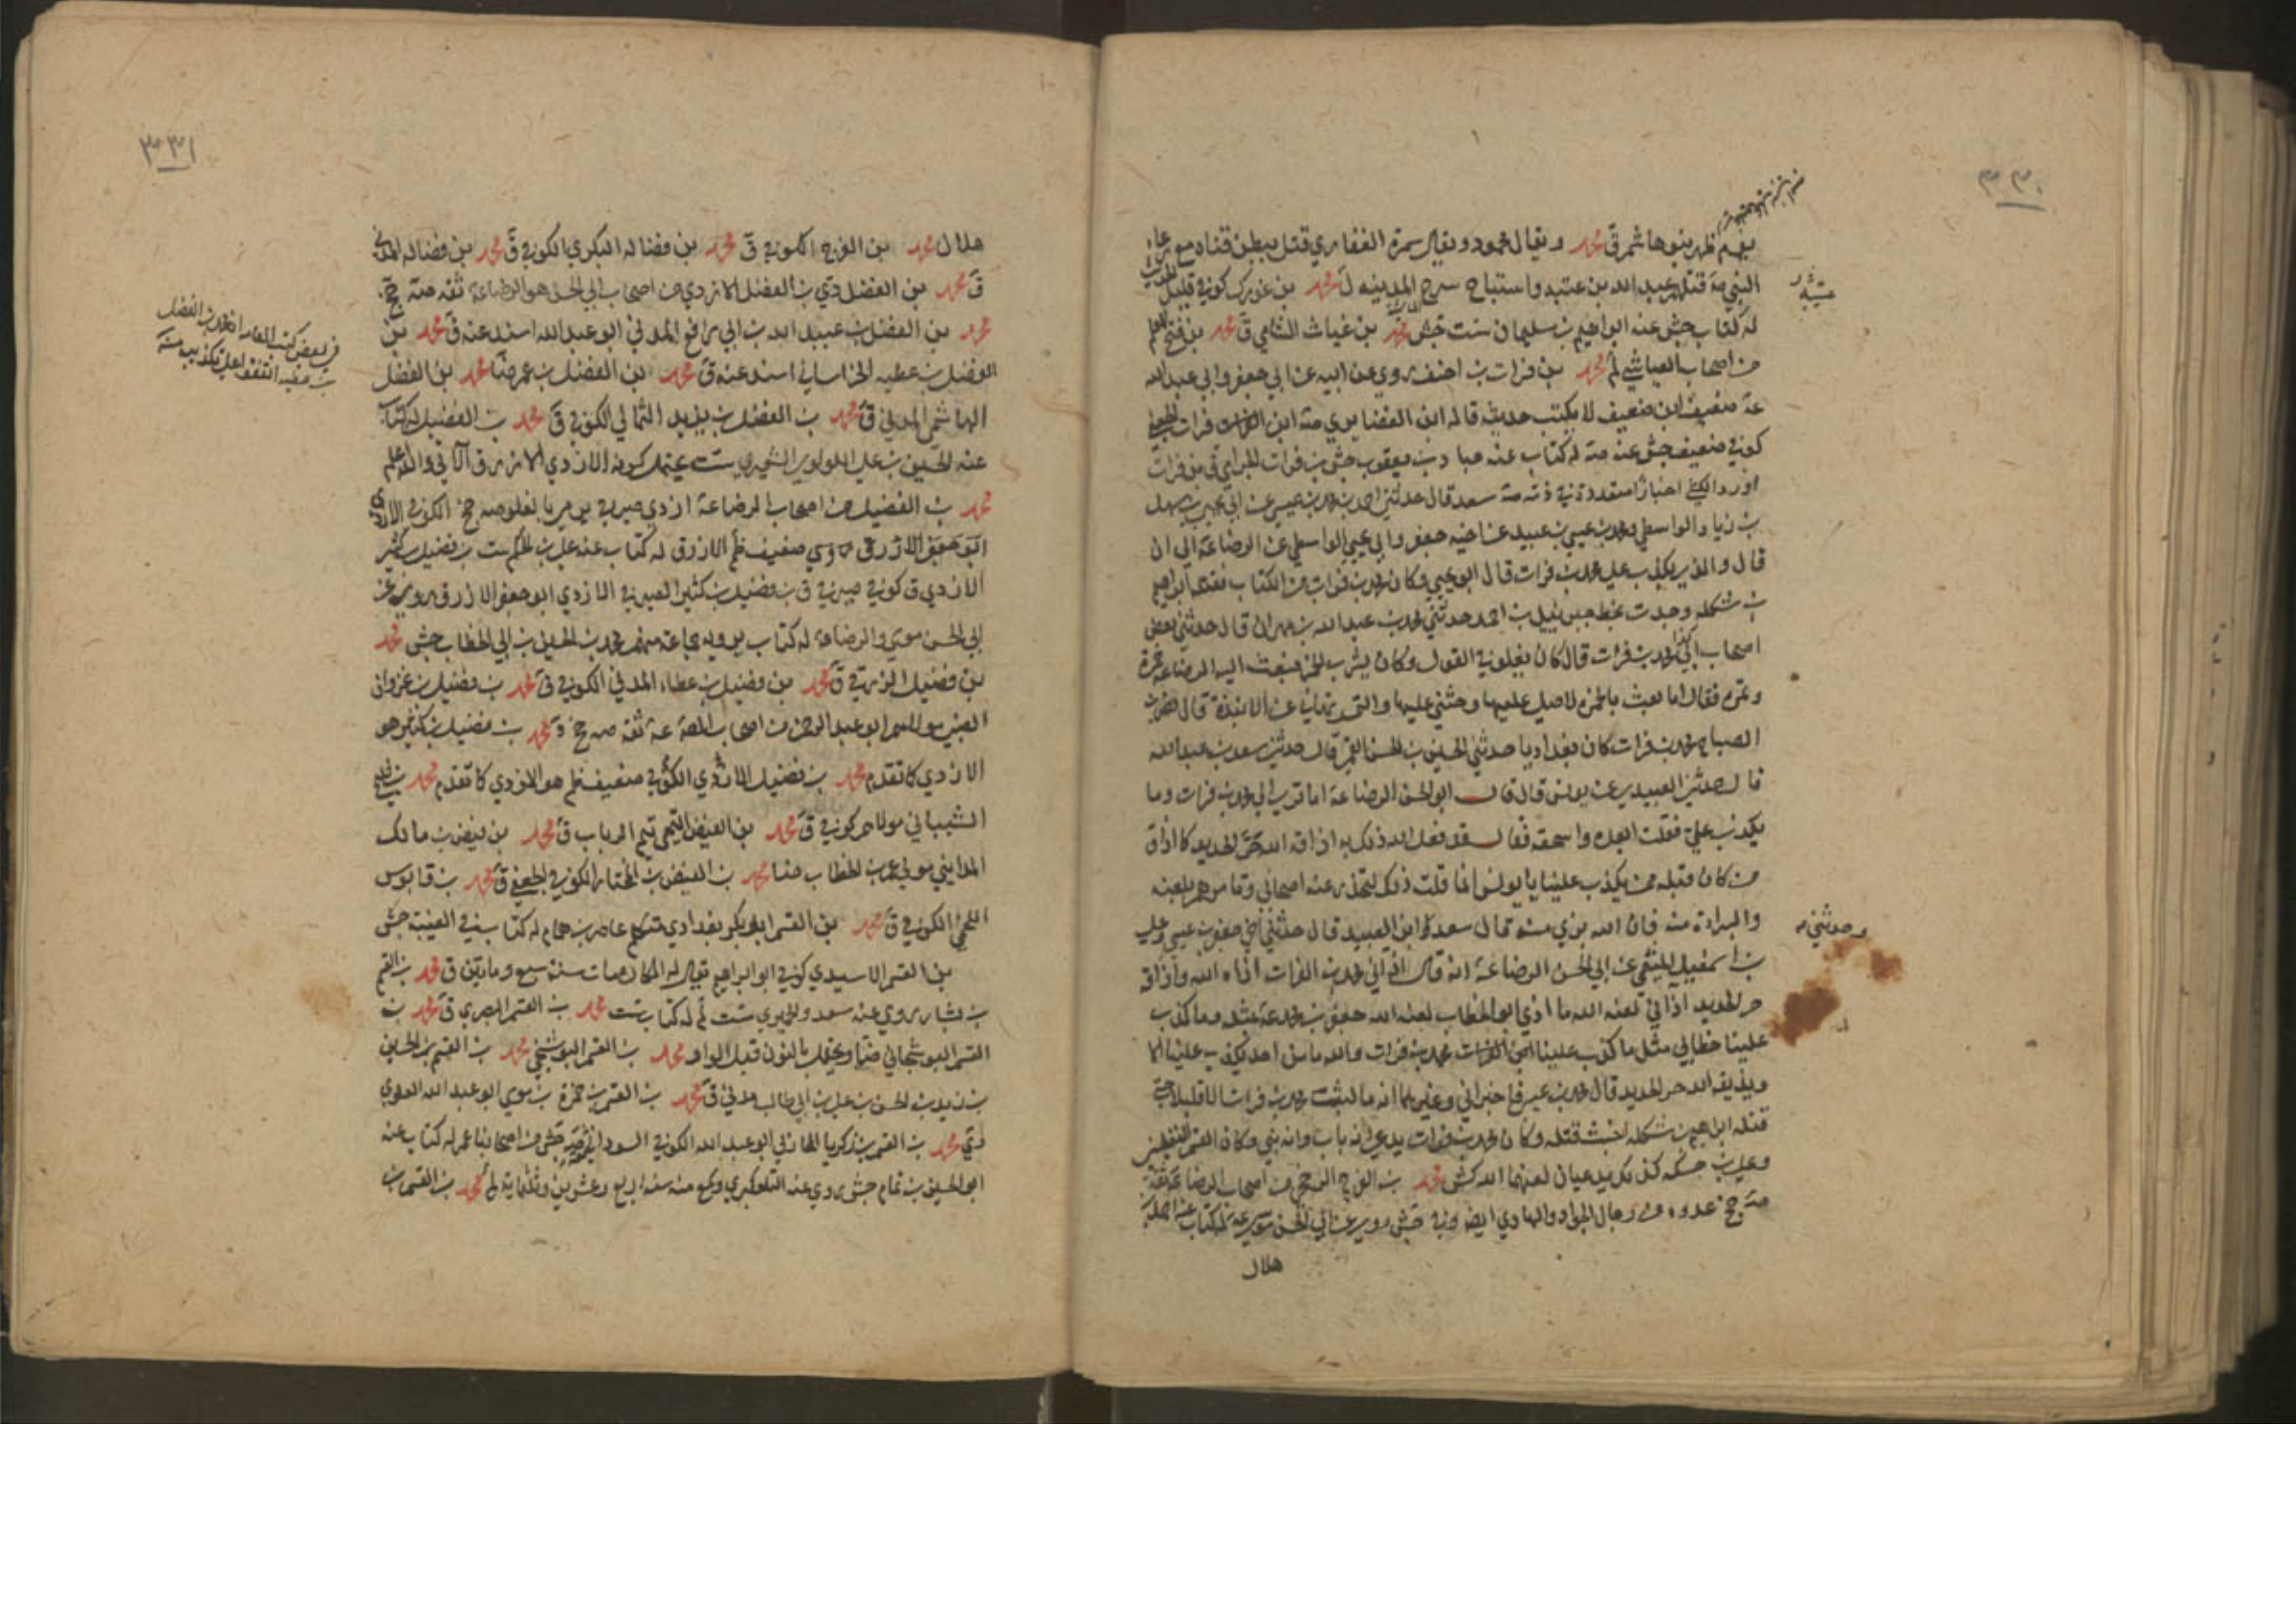 ٣٣٠
بفم ظهر بنوها شمر ق محمد ويقال محمود ويقال سمرة الغفاري قتل ببطن قناة مع
النبي قتله عبد الله بن عتيبه واستباح سرح المدينه ل محمد بن عورك كوفي قليل
له كتاب جش عنه ابراهيم بن سليمان ست جش محمد بن غياث الشامي ق محمد بن فتح
من اصحاب العياشي لم محمد بن فرات بن احنف روى عن ابيه عن ابي جعفر وابي عبد الله
ضعيف ابن ضعيف لا يكتب حديثه قاله ابن الغضايري ابن فرات الجعفي
كوفي ضعيف جش عنه له كتاب عنه عباد بن يعقوب جش بن فرات الجرامي ق بن فرات
اورد الكشي اخبارا متعددة في ذمه سعد قال حدثني احمد بن محمد بن عيسى عن ابي يحيى سهل
بن زياد الواسطي ومحمد بن عيسى بن عبيد عن اخيه جعفر وابي يحيى الواسطي عن الرضا عة الى ان
قال والذي يكذب علي محمد بن فرات قال ابو يحيى وكان محمد بن فرات من الكتاب فقتله ابراهيم
بن شكله وجدت بخط جبرئيل بن احمد حدثني محمد بن عبد الله بن مهران قال حدثني بعض
اصحابنا محمد بن فرات قال كان يغلو في القول وكان يشرب الخمر فبعث اليه الرضا عة خمرة
وتمر فقال اما بعث بالخمرة لاصلي عليها وحثني عليها والتمر نهاني عن الانبذة قال نصر بن
الصباح محمد بن فرات كان بغداديا حدثني الحسين بن الحسن القمي قال حدثني سعد بن عبد الله
قال حدثني العبيدي عن يونس قال قال ابو الحسن الرضا عة اما ترى الى محمد بن فرات وما
يكذب علي فقلت ابعده واسحقه فقال قد فعل الله ذلك به اذاقه الله حر الحديد كما اذاق
من كان قبله ممن يكذب علينا يا يونس انما قلت ذلك لتحذر عنه اصحابي وتامرهم بلعنه
والبراءة منه فان الله بري منه قال سعد وابن العبيد قال حدثني اخي جعفر بن عيسى وعلي
بن اسمعيل الميثمي عن ابي الحسن الرضا عة انه قال اذاني محمد بن الفرات اذاه الله واذاقه
حر الحديد اذاني لعنه الله ما اذى ابو الخطاب لعنه الله جعفر بن محمد عة بمثله وما كذب
علينا خطابي مثل ما كذب علينا محمد بن فرات والله ما من احد يكذب علينا الا
ويذيقه الله حر الحديد قال محمد بن عيسى فاخبراني وغيرهما انه ما لبث محمد بن فرات الا قليلا حتى
قتله ابراهيم بن شكله اخبث قتله وكان محمد بن فرات يدعي انه باب وانه نبي وكان القسم اليقطيني
وعلي بن حسكه كذلك يدعيان لعنهما الله كش محمد بن الفرج الرخجي من اصحاب الرضا عة ثقة
جخ عدوه من رجال الجواد والهادي ايضا وفي جش روى عن ابي الحسن موسى عة له كتاب عنه احمد بن
هلال
عتيبه
وحدثني
٣٣١
هلال محمد بن الفرج الكوفي ق محمد بن فضاله البكري الكوفي ق محمد بن فضاله المدني
ق محمد بن الفضل دي بن الفضل الازدي من اصحاب ابي الحسن هو الرضا عة ثقه جخ
محمد بن الفضل بن عبيد الله بن ابي رافع المدني ابو عبد الله اسند عنه ق محمد بن
الفضل بن عطيه الخراساني اسند عنه ق محمد بن الفضل بن عمر ضا محمد بن الفضل
الهاشمي المدني ق محمد بن الفضل بن يزيد الثمالي الكوفي ق محمد بن الفضيل له كتاب
عنه الحسين بن علي اللولوي الشعيري ست يحتمل كونه الازدي الازرق الاتي والله اعلم
محمد بن الفضيل من اصحاب الرضا عة ازدي صيرفي يرمى بالغلو جخ الكوفي الازدي
ابو جعفر الازرق روى ضعيف ظم الازرق له كتاب عنه علي بن الحكم ست بن فضيل بن كثير
الازدي ق كوفي صيرفي ق بن فضيل بن كثير الصيرفي الازدي ابو جعفر الازرق روى عن
ابي الحسن موسى والرضا عة له كتاب يرويه جماعة منهم محمد بن الحسين بن ابي الخطاب جش محمد
بن فضيل الزرقي ق محمد بن فضيل بن عطاء المدني الكوفي ق محمد بن فضيل بن غزوان
الضبي مولاهم ابو عبد الرحمن من اصحاب الصة عة ثقه جخ د محمد بن فضيل بن كثير هو
الازدي كما تقدم محمد بن فضيل الازدي الكوفي ضعيف ظم هو الازدي كما تقدم محمد بن
الشيباني مولاهم كوفي ق محمد بن الفيض التيمي تيم الرباب ق محمد بن فيض بن مالك
المدايني مولى عمر بن الخطاب ضا محمد بن الفيض بن المختار الكوفي الجعفي ق محمد بن قابوس
اللخمي الكوفي ق محمد بن القسم ابو بكر بغدادي متكلم عاصر بن همام له كتاب في الغيبة جش
بن القسم الاسيدي كوفي ابو ابراهيم يقال له الكان مات سنة سبع ومايتين ق محمد بن القسم
بن بشار روى عنه سعد والحميري ست لم له كتاب ست محمد بن القسم البصري ق محمد بن
القسم البوشجاني ضا ويحتمل بالنون قبل الواو محمد بن القسم البوشنجي محمد بن القسم بن الحسين
بن زيد بن الحسن بن علي بن ابي طالب مدني ق محمد بن القسم بن حمزة بن موسى ابو عبد الله العلوي
محمد بن القسم بن زكريا المحاربي ابو عبد الله الكوفي السوداني جش من اصحابنا عمر له كتاب عنه
ابو الحسين بن تمام جش روى عنه التلعكبري وسمع منه سنه اربع وعشرين وثلثماية لم محمد بن القسم بن
في بعض كتب